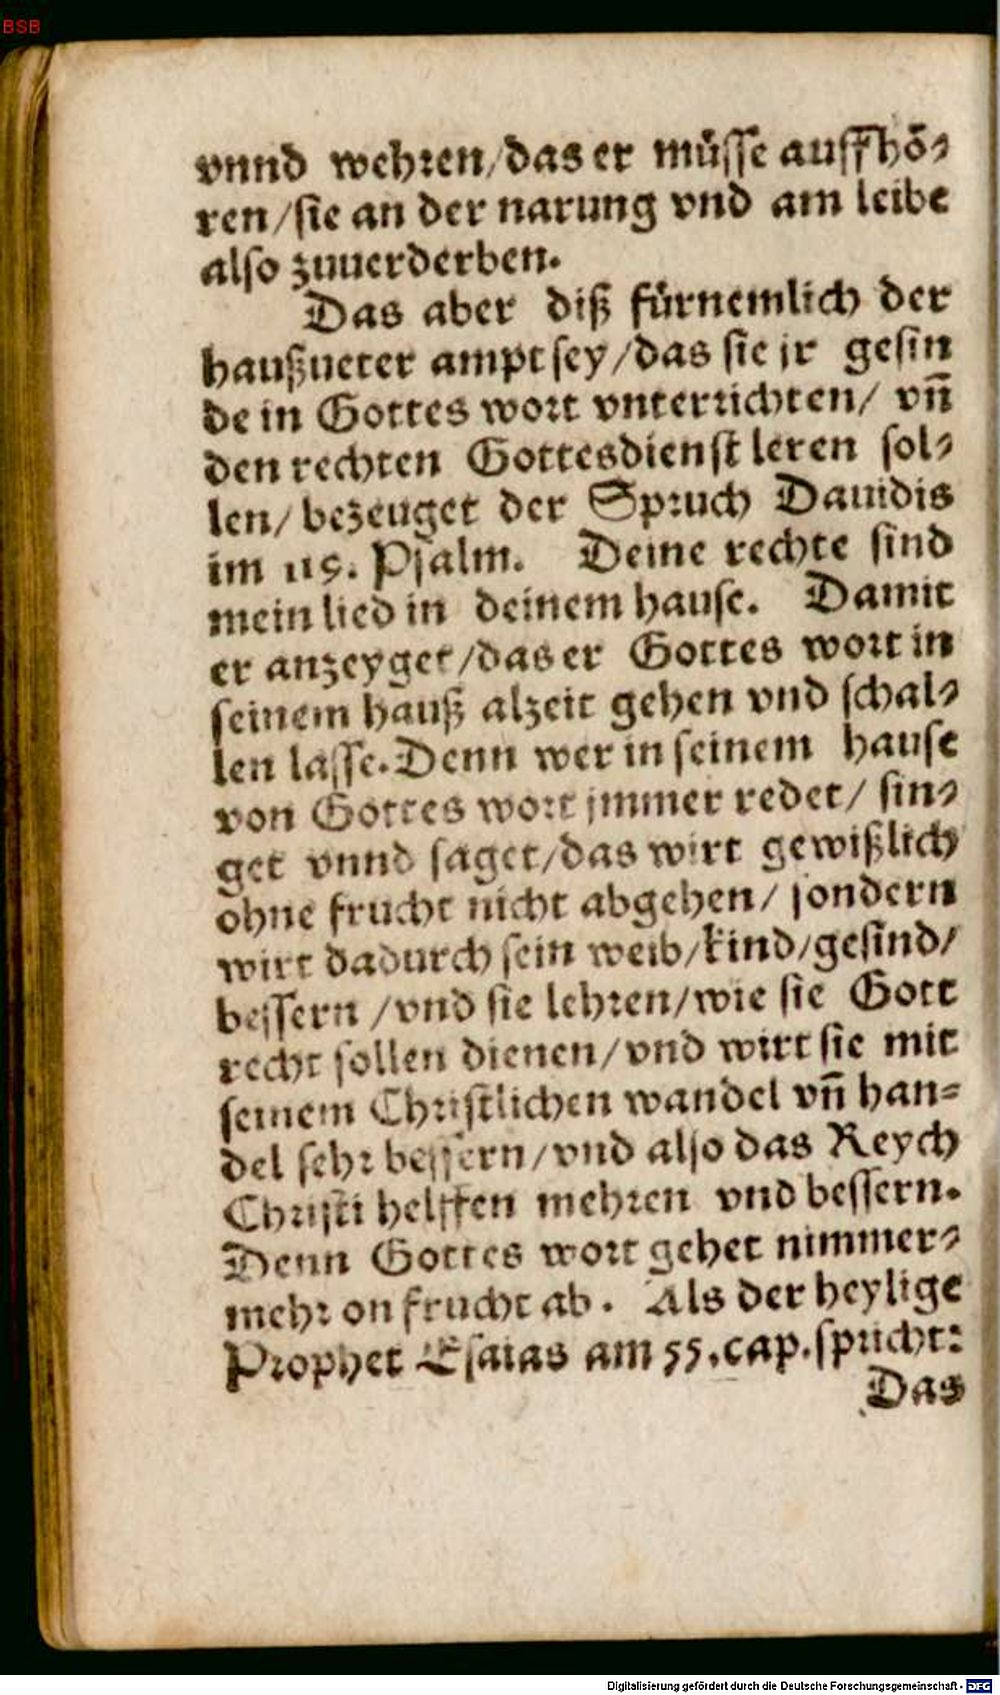 BSB
vnnd wehren/das er müsse auffhö⸗
ren/sie an der narung vnd am leibe
also zuuerderben.
Das aber diß fürnemlich der
haußueter ampt sey/das sie jr gesin
de in Gottes wort vnterrichten/ vn̄
den rechten Gottesdienst leren sol⸗
len/ bezeuget der Spruch Dauidis
im 119. Psalm. Deine rechte sind
mein lied in deinem hause. Damit
er anzeyget/das er Gottes wort in
seinem hauß alzeit gehen vnd schal⸗
len lasse. Denn wer in seinem hause
von Gottes wort jmmer redet/ sin⸗
get vnnd saget/das wirt gewißlich
ohne frucht nicht abgehen/ sondern
wirt dadurch sein weib/kind/gesind/
bessern /vnd sie lehren/wie sie Gott
recht sollen dienen/vnd wirt sie mit
seinem Christlichen wandel vn̄ han⸗
del sehr bessern/vnd also das Reych
Christi helffen mehren vnd bessern.
Denn Gottes wort gehet nimmer⸗
mehr on frucht ab. Als der heylige
Prophet Esaias am 55.cap.spricht:
Das
Digitalisierung gefördert durch die Deutsche Forschungsgemeinschaft - DFG